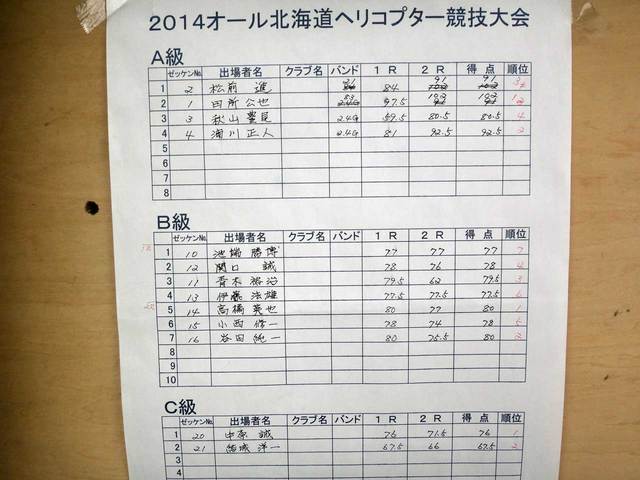 2014オール北海道ヘリコプター競技大会
A級
ゼッケン№ 出場者名 クラブ名 バンド 1R 2R 得点 順位
1 2 松前 進 84 91 91
2 1 田所 公也 97.5 102 102 1
3 3 秋山 豊晃 2.4G 59.5 80.5 80.5 4
4 4 滝川 正人 2.4G 81 92.5 92.5 2
5
6
7
8
B級
ゼッケン№ 出場者名 クラブ名 バンド 1R 2R 得点 順位
1 10 池端 勝博 77 77 77 7
2 12 関口 誠 78 76 78 4
3 11 青木 裕治 79.5 62 79.5 3
4 13 伊藤 法雄 77.5 77.5 77.5 6
5 14 高橋 英也 80 77 80 1
6 15 小西 修一 78 74 78 5
7 16 谷田 純一 80 75.5 80 2
8
9
10
C級
ゼッケン№ 出場者名 クラブ名 バンド 1R 2R 得点 順位
1 20 中原 誠 76 71.5 76 1
2 21 結城 洋一 67.5 66 67.5 2
3
4